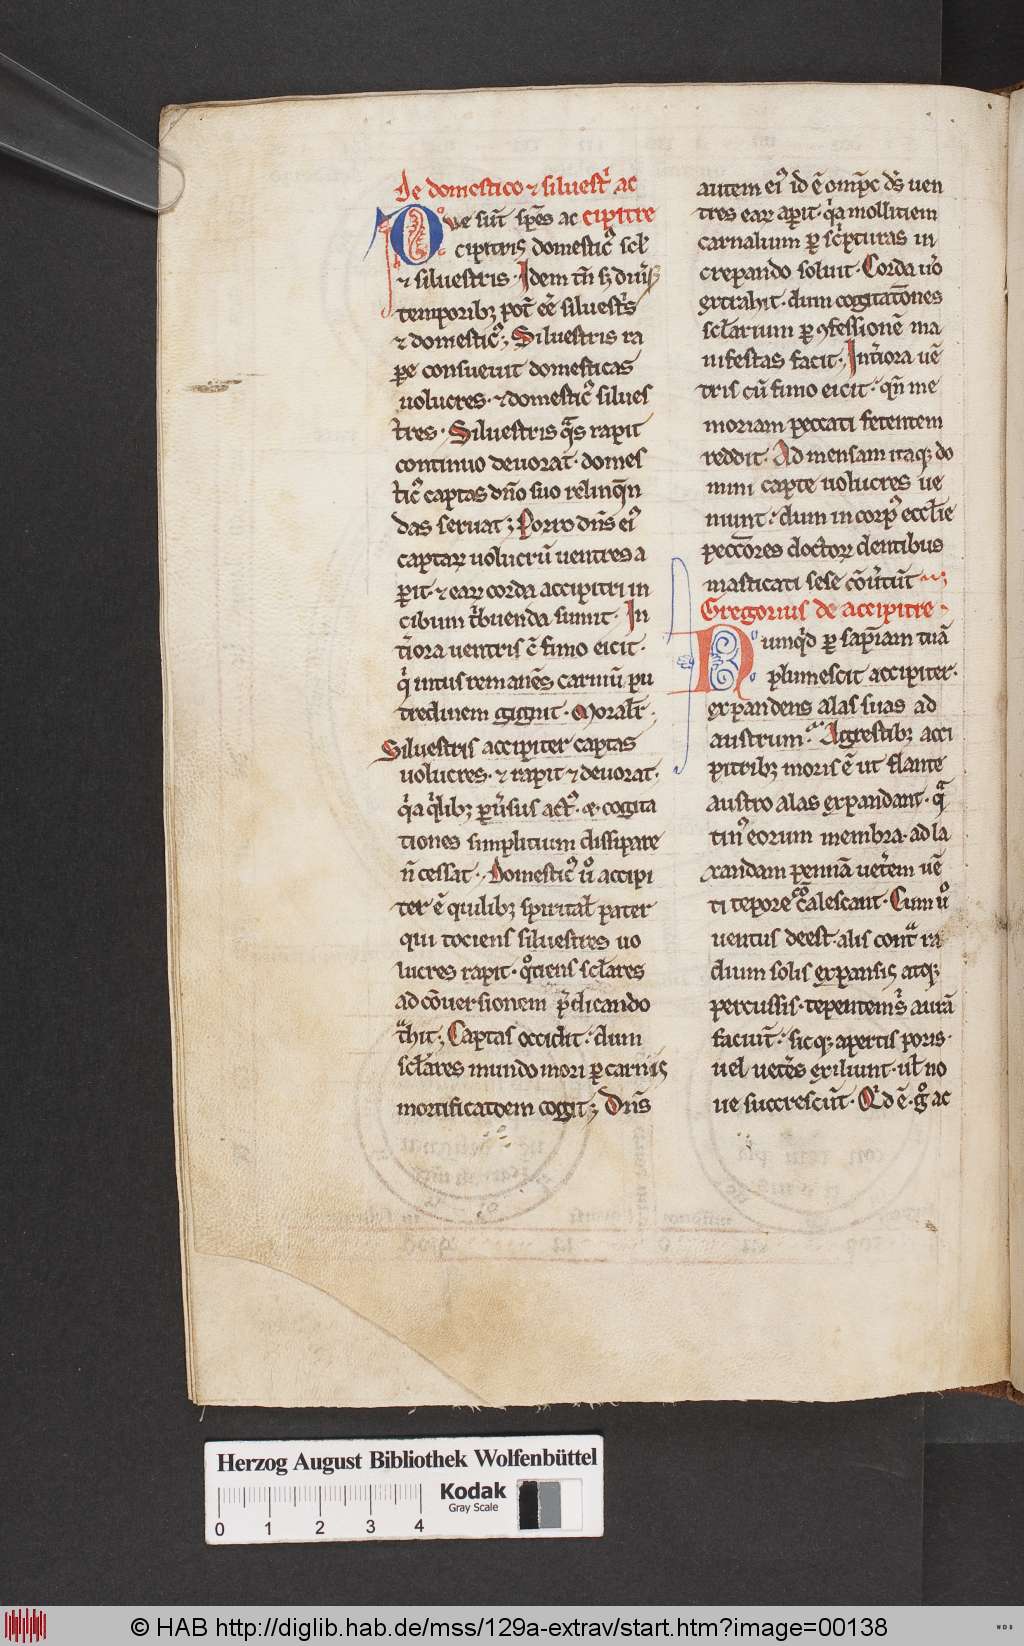 De domestico ⁊ siluest̃ ac
Due sūt sp̄es ac cipitre
cipitris domesticꝰ scꝉ
⁊ siluestris. Idem tn̄ s diu̾sꝭ
temporibꝫ pot̄ ee̅ siluest̾s
⁊ domesticꝰ; Siluestris ra
ꝑe consueuit domesticas
uolucres. ⁊ domesticꝰ silues
t̾res. Siluestris qᵃs rapit
continuo deuorat. domes
ticꝰ captas dn̄o suo relinqn̄
das seruat; Porro dn̄s eiꝰ
captaꝝ uolucrū uentres a
ꝑit. ⁊ eaꝝ corda accipitri in
cibum tⁱbuenda sumit. In
t̾iora uentris c̄ fimo eicit.
qⁱ intus remanēs carniū pu
tredinem gignit. Moralit̾.
Siluestris accipiter captas
uolucres. ⁊ rapit ⁊ deuorat.
qⁱa qⁱlibꝫ ꝑu̾sus actꝰ. ⁊ cogita
tiones simplitium dissipare
n̄ cessat. Domesticꝰ uͦ accipi
ter ē quilibꝫ spiritaꝉ pater
qui tociens siluestres uo
lucres rapit. qͦtiens scƚares
ad cōuersionem p̄dicando
tᵃhit; Captas occidit. dum
scƚares mundo mori ꝑ carnis
mortificatōem cogit; Dn̄s
autem eiꝰ id ē om̄pc̄ dꝰs uen
tres eaꝝ aꝑit. qⁱa mollitiem
carnalium ꝑ sc̾pturas in
crepando soluit. Corda uͦo
extrahit. dum cogitatōnes
scƚarium ꝑ ꝯfessionē ma
nifestas facit. Int̾iora uē
tris cū fimo eicit. qn̄ me
moriam peccati fetentem
reddit. Ad mensam itaqꝫ do
mini capte uolucres ue
niunt. dum in corpꝰ eccƚie
pecc̄ores doctoꝝ dentibus
masticati sese cōu̾tūt
Gregorius de accipitre
Numqⁱd ꝑ sap̄iam tuā
plumescit accipiter.
expandens alas suas ad
austrum. Agrestibꝫ acci
pitribꝫ moris ē ut flante
austro alas expandant. qᵃ
tinꝰ eorum membra. ad la
xandam pennā uet̾em uē
ti tepore cōcalescant. Cum uͦ
uentus deest. alis contᵃ ra
dium solis expansis atqꝫ
percussis. tepentem sⁱ aurā
faciūt. sicqꝫ apertis poris.
uel uet̾es exiliunt. uƚ no
ue succrescūt. Qⁱd ē gͦ ac
Herzog August Bibliothek Wolfenbüttel
Kodak
Gray Scale
0 1 2 3 4
© HAB http://diglib.hab.de/mss/129a-extrav/start.htm?image=00138